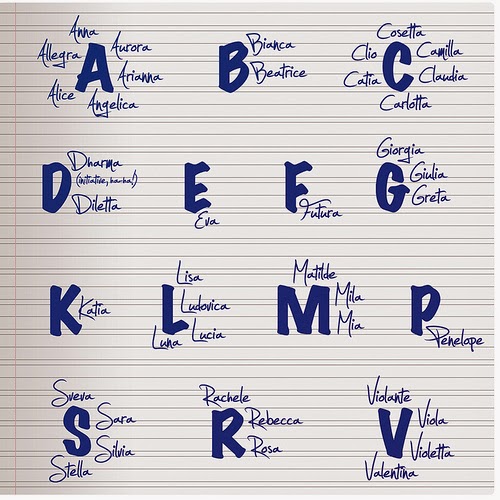 A
Anna
Allegra
Aurora
Arianna
Alice
Angelica
B
Bianca
Beatrice
C
Cosetta
Clio
Camilla
Catia
Claudia
Carlotta
D
Dharma
(initiative, ha-ha!)
Diletta
E
Eva
F
Futura
G
Giorgia
Giulia
Greta
K
Katia
L
Lisa
Ludovica
Luna
Lucia
M
Matilde
Mila
Mia
P
Penelape
S
Sveva
Sara
Silvia
Stella
R
Rachele
Rebecca
Rosa
V
Violante
Viola
Violetta
Valentina